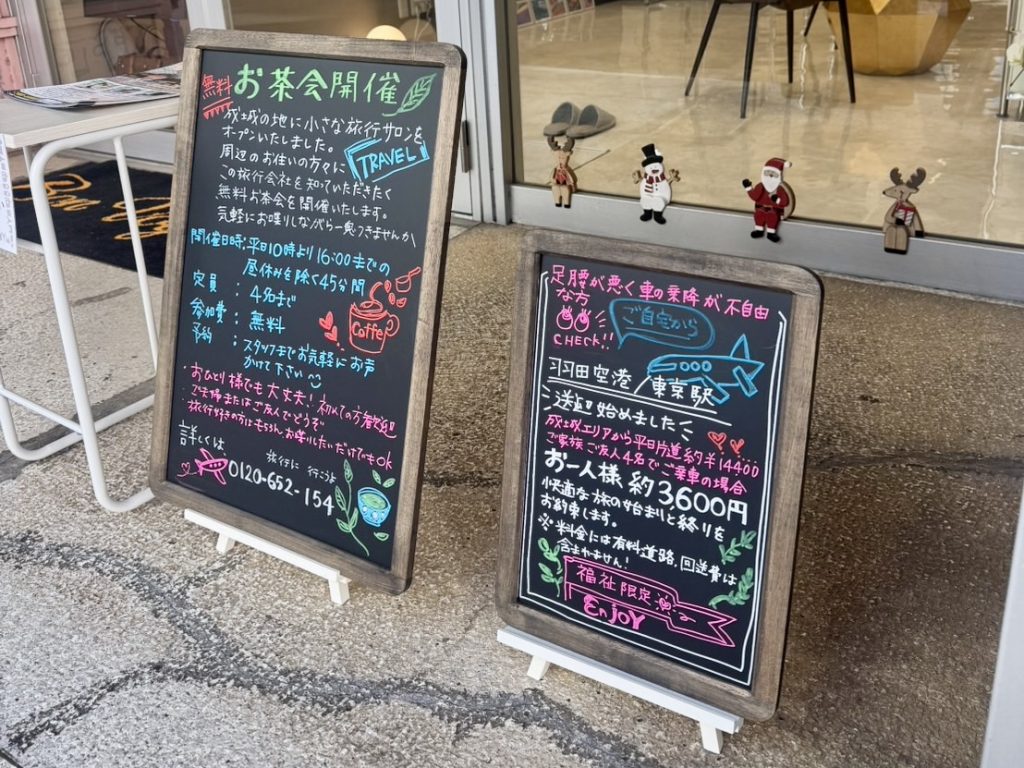 無料
お茶会開催
成城の地に小さな旅行サロンを
オープンいたしました。
TRAVEL
周辺のお住いの方々に
この旅行会社を知っていただきたく
無料お茶会を開催いたします。
気軽にお喋りしながら一息つきませんか
開催日時:平日10時より16:00までの
昼休みを除く45分間
定員 : 4名まで
参加費 : 無料
予約 : スタッフまでお気軽にお声
かけて下さい
Coffee
・おひとり様でも大丈夫!初めての方歓迎
・ご夫婦またはご友人でどうぞ
・旅行好きの方はもちろん、お喋りしたいだけでもOK
詳しくは
旅行に行こうよ
0120-652-154
足腰が悪く車の乗降が不自由
な方
CHECK!!
ご自宅から
羽田空港 東京駅
送迎始めました
成城エリアから平日片道約¥14400
ご家族ご友人4名でご乗車の場合
お一人様約3600円
快適な旅の始まりと終りを
お約束します。
※料金には有料道路、回送費は
含まれません!
福祉限定
Enjoy